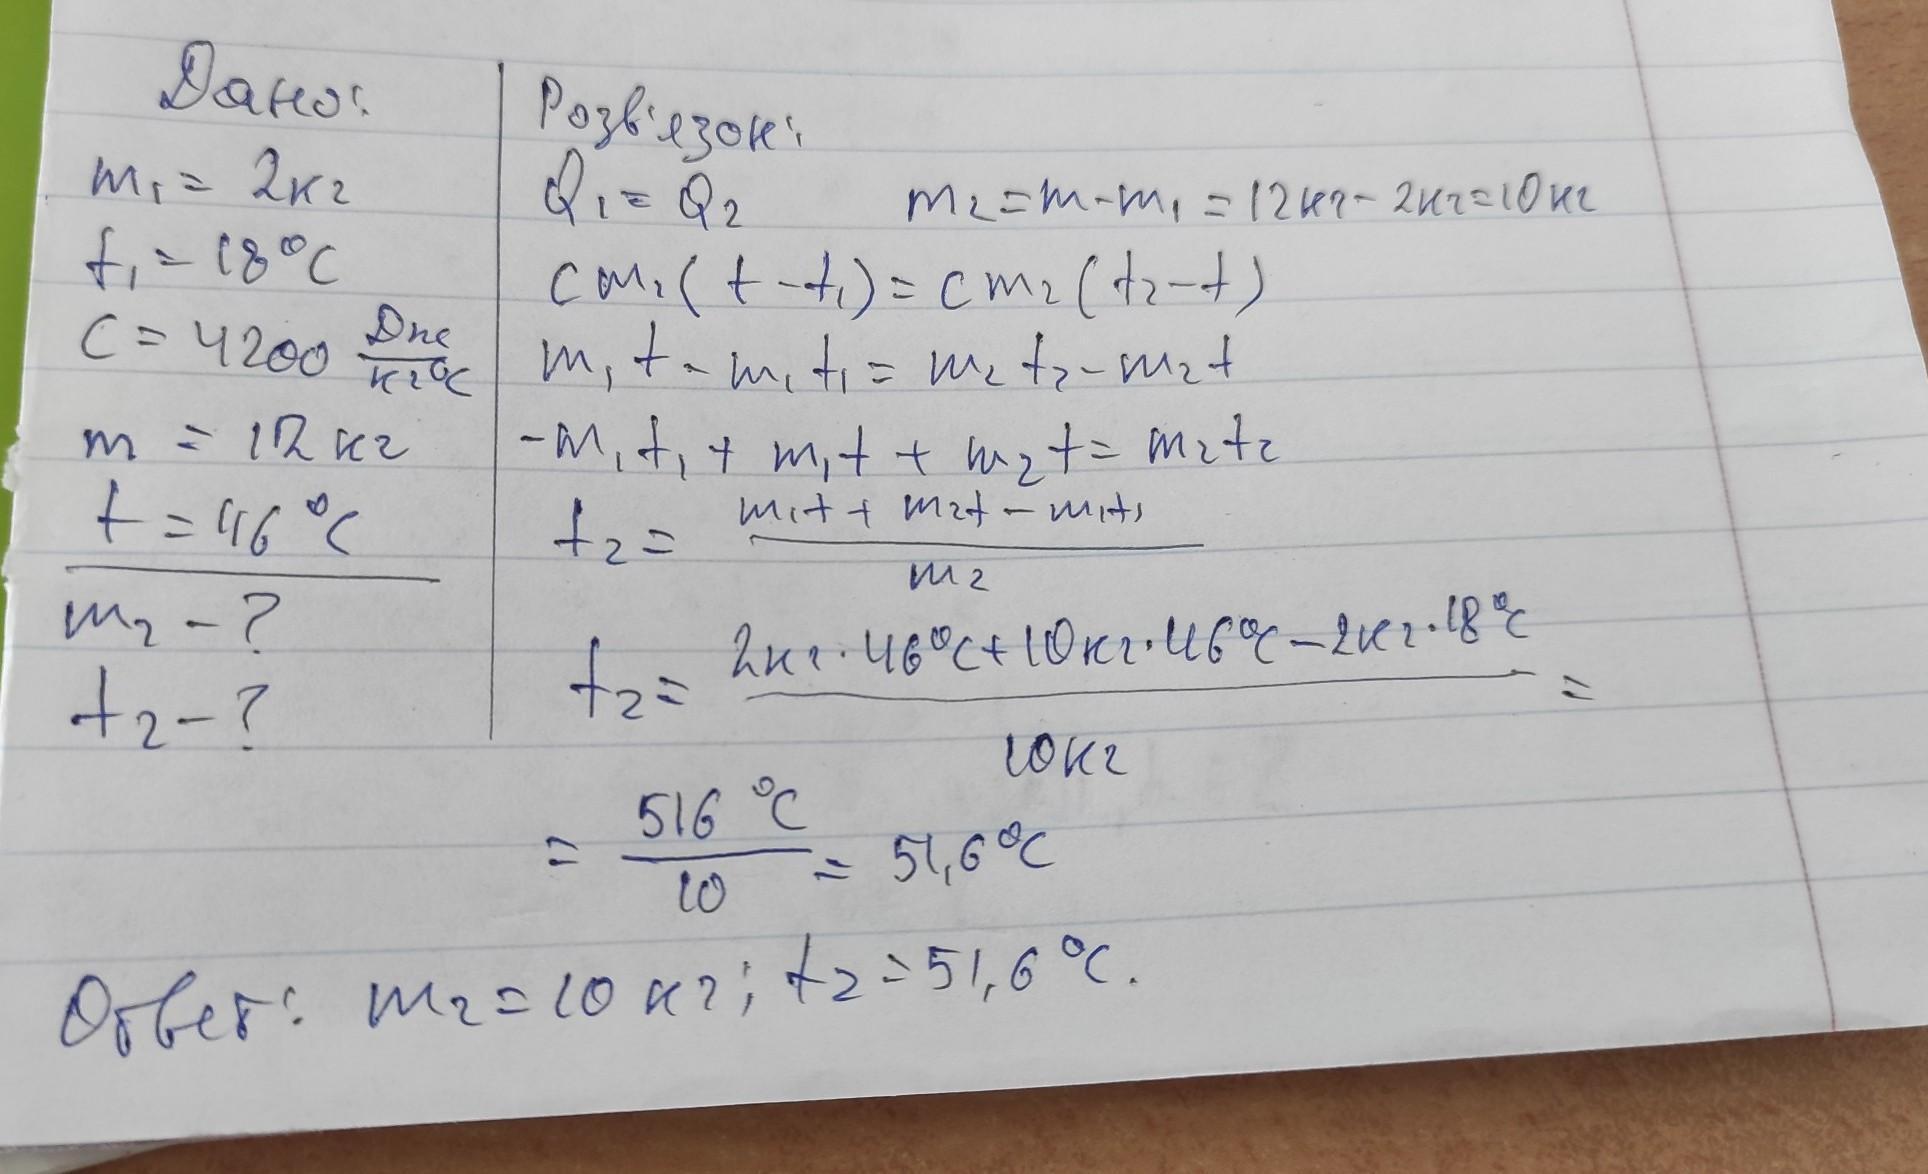 Дано:
m₁ = 2кг
t₁ = 18°C
C = 4200 Дж/кг°C
m = 12 кг
t = 46°C
m₂ - ?
t₂ - ?
Розв'язок:
Q₁ = Q₂ m₂ = m - m₁ = 12кг - 2кг = 10кг
cm₁(t - t₁) = cm₂(t₂ - t)
m₁t - m₁t₁ = m₂t₂ - m₂t
-m₁t₁ + m₁t + m₂t = m₂t₂
t₂ = (m₁t + m₂t - m₁t₁)/m₂
t₂ = (2кг·46°C + 10кг·46°C - 2кг·18°C)/10кг =
= 516°C/10 = 51,6°C
Ответ: m₂ = 10 кг; t₂ = 51,6°C.